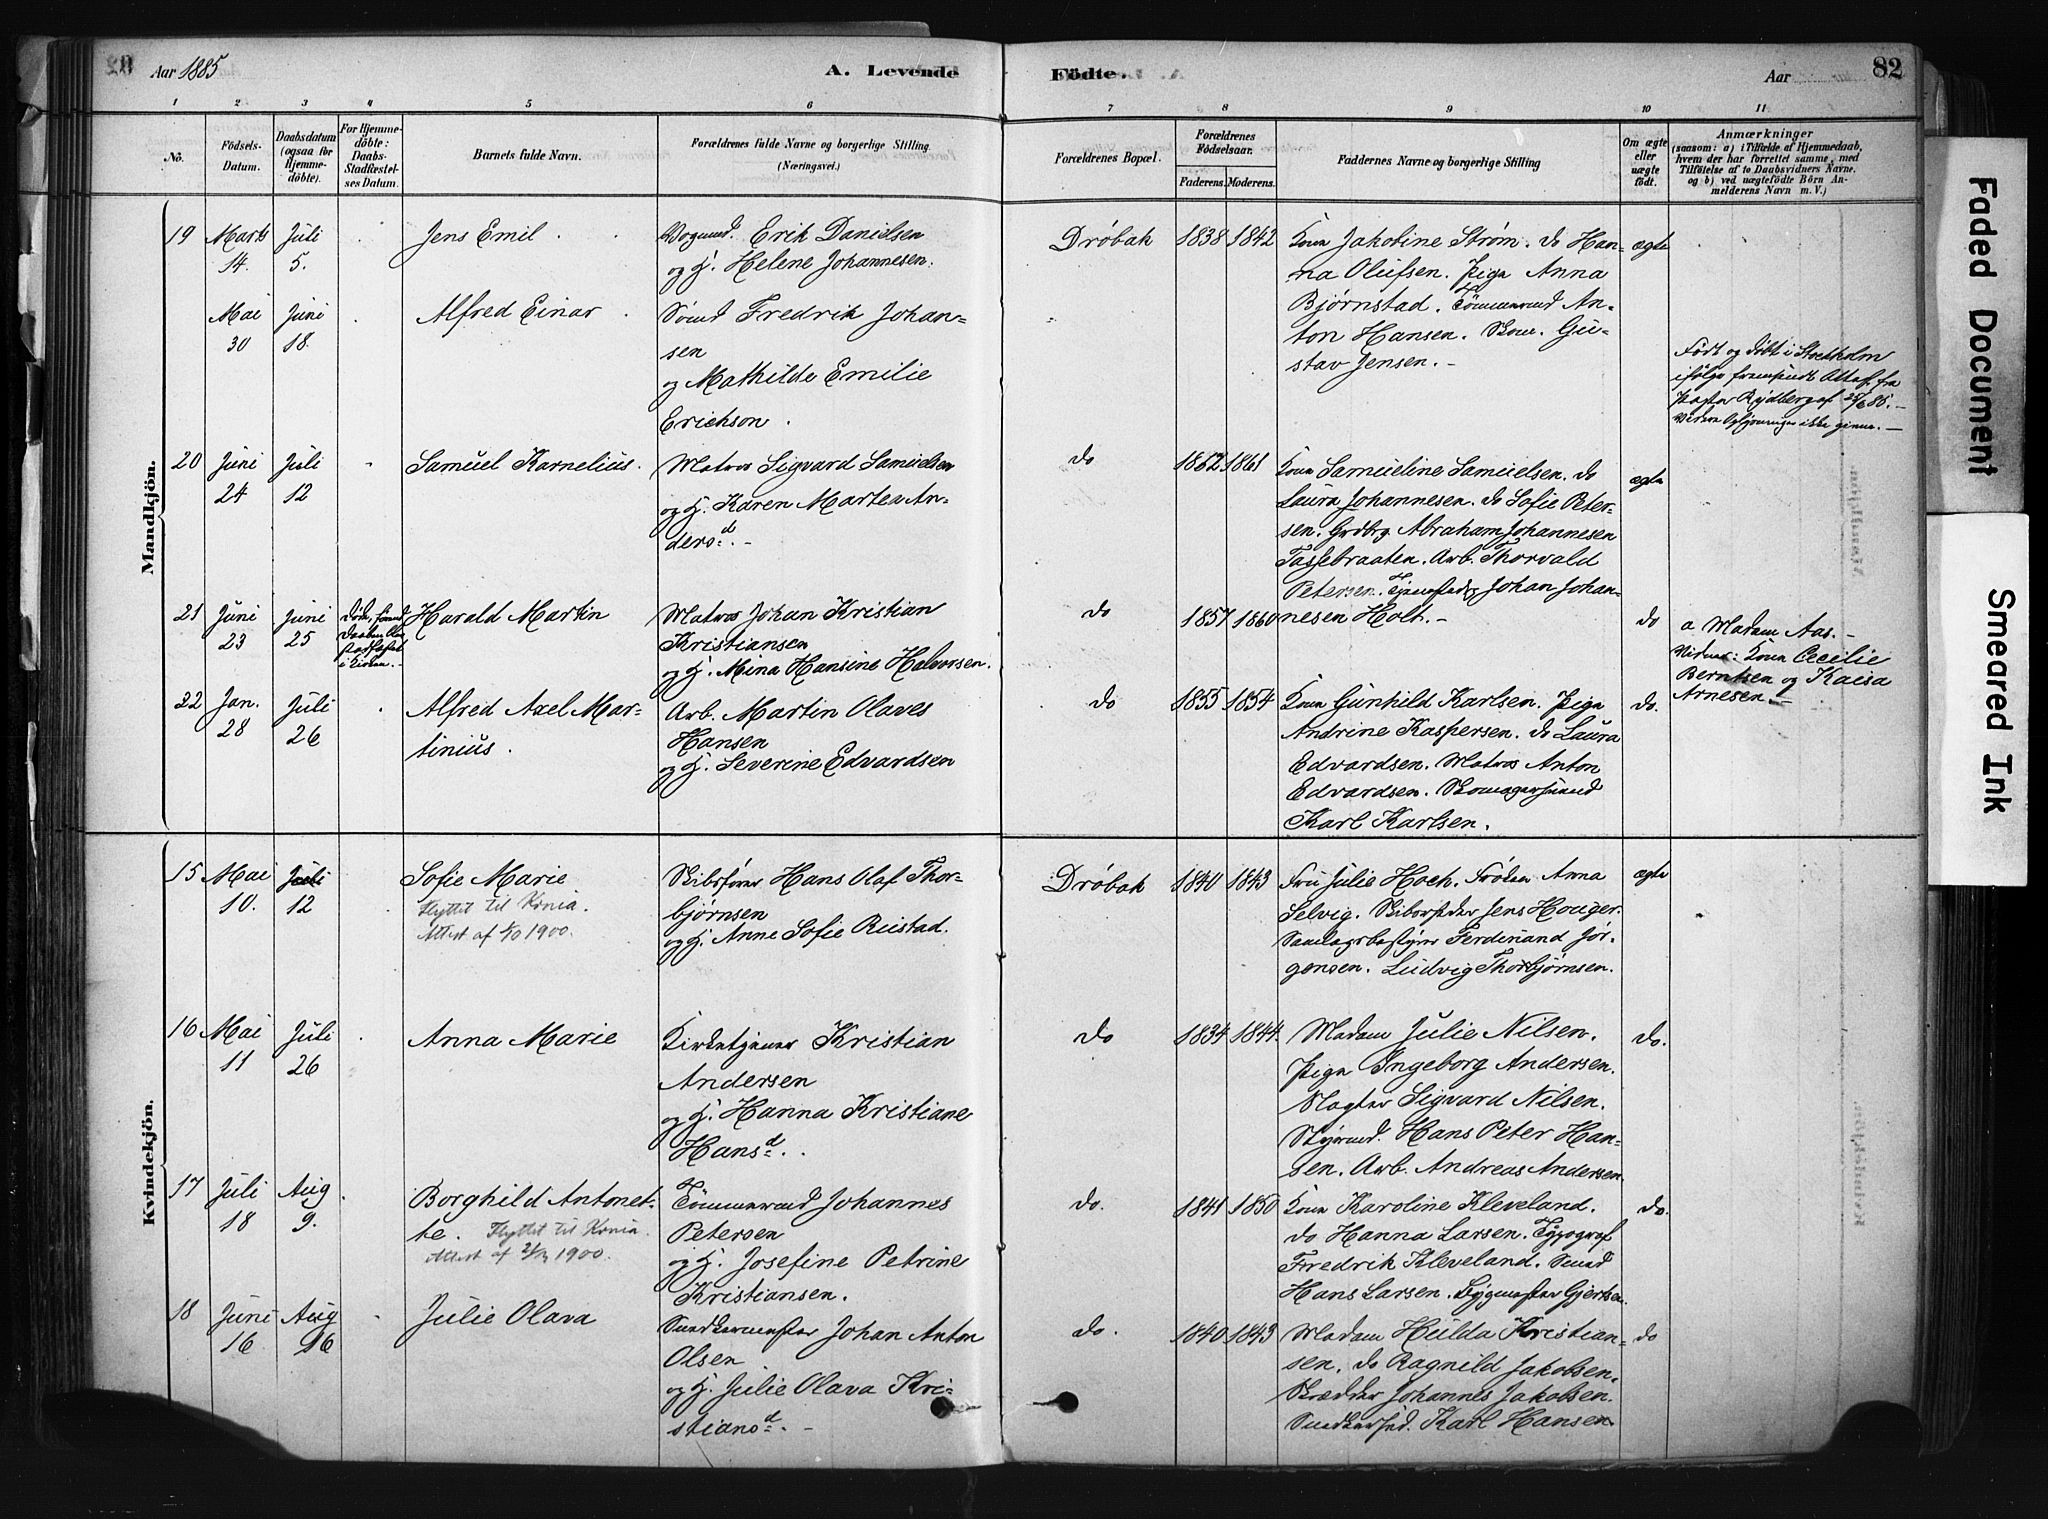 Aar 1885
A. Levende
Födte.
Aar
82
1 2 3 4 5 6 7 8 9 10 11
No.
Födsels-
Datum.
Daabsdatum
(ogsaa for
Hjemme-
döbte).
For Hjemme-
döbte:
Daabs-
Stadfæstel-
ses Datum.
Barnets fulde Navn.
Forældrenes fulde Navne og borgerlige Stilling.
(Næringsvei.)
Forældrenes Bopæl.
Forældrenes
Födselsaar.
Faderens. Moderens.
Faddernes Navne og borgerlige Stilling
Om ægte
eller
uægte
födt.
Anmærkninger
(saasom: a) i Tilfælde af Hjemmedaab,
hvem der har forrettet samme, med
Tilföielse af to Daabsvidners Navne.
og b) ved uægtefödte Börn An-
melderens Navn m. V.)
Mandkjön.
19 Marts 14. Juli 5. Jens Emil
Erik Danielsen
og H. Helene Johannesen.
Drøbak 1838 1842
Kone Jakobine Strøm. do Han-
na Olufsen. Pige Anna
Bjørnstad. Tømmermd An-
ton Hansen. Skom. Gu-
stav Jensen.-
ægte
Mai 30 Juni 18. Alfred Einar
Sømd Fredrik Johan-
sen
og Mathilde Emilie
Erichson.
Født og døbt i Stockholm
ifølge fremsendt Attest fra
Pastor Rydberg af 25/6 85.-
Videre Oplysninger ikke givne.-
20 Juni 24 Juli 12 Samuel Karnelius.
Matros Sigvard Samuelsen
og H. Karen Martea An-
dersd.-
do 1862 1861
Kone Samueline Samuelsen. do
Laura Johannesen. do Sofie Peter-
sen. Grdbrg. Abraham Johannesen
Tassebraaten. Arb. Thorvald
Petersen. Johan Johan-
nesen Holt.-
ægte
21 Juni 23 Juni 25
Døde, førend
Daaben blev
stadfæstet
i Kirken.-
Harald Martin
Matros Johan Kristian
Kristiansen
og H. Mina Hansine Halvorsen.
do 1857 1860
do
a Madam Aas.-
Vidner: Kone Cecilie
Berntsen og Kaisa
Arnesen.-
22 Jan. 28 Juli 26 Alfred Axel Mar-
tinius.
Arb. Martin Olaves
Hansen
og H. Severine Edvardsen
do 1855 1854
Kone Gunhild Karlsen. Pige
Andrine Kaspersen. do Laura
Edvardsen. Matros Anton
Edvardsen. Skomagersvend
Karl Karlsen.
do.
Kvindekjön.
15 Mai 10. Juli 12 Sofie Marie
Flyttet til Krnia.
Attest af 1900.
Skibsfører Hans Olaf Thor-
bjørnsen
og H. Anne Sofie Rustad.
Drøbak 1840 1843
Fru Julie Hoch. Frøken Anna
Selvig. Skibsreder Jens Houger.
Samlagsbestyrer Ferdinand Jør-
gensen. Ludvig Thorbjørnsen.
ægte
16 Mai 11 Juli 26 Anna Marie
Kirketjener Kristian
Andersen
og H. Hanna Kristiane
Hansd.
do 1834 1844.
Madam Julie Nilsen.
Pige Ingeborg Andersen.
Slagter Sigvard Nilsen.
Hans Peter Han-
sen. Arb. Andreas Andersen.
do.
17 Juli 18 Aug 9. Borghild Antonet-
te. Flyttet til Krnia.
Attest af 1900.
Tømmermd Johannes
Petersen
og H. Josefine Petrine
Kristiansen.
do. 1841 1850
Kone Karoline Kleveland.
do Hanna Larsen. Typograf
Fredrik Kleveland. Smed
Hans Larsen. Bygmester Gjertsen.
do.
18 Juni 16 Aug 16 Julie Olava
Snedkermester Johan Anton
Olsen
og H. Julie Olava Kri-
stiansd.-
do. 1840 1843
Madam Hulda Kristian-
sen. do Ragnild Jakobsen.
Skrædder Johannes Jakobsen.
Karl Hansen.
do
Faded Document
Smeared Ink